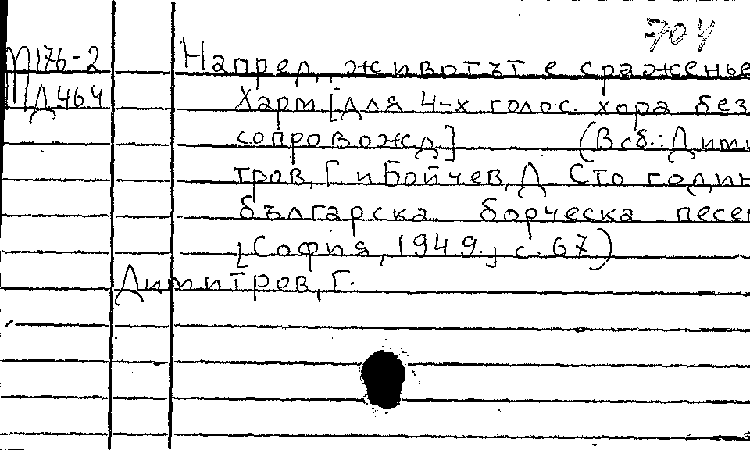 704
М176-2 Напред, животът е сраженье
Д464 Харм. [для 4-х голос. хора без
сопровожд.] (В сб.: Дими
тров, Г. и Бойчев, Д. Сто годин
българска борческа песен
[София, 1949.] с. 67)
Димитров, Г.